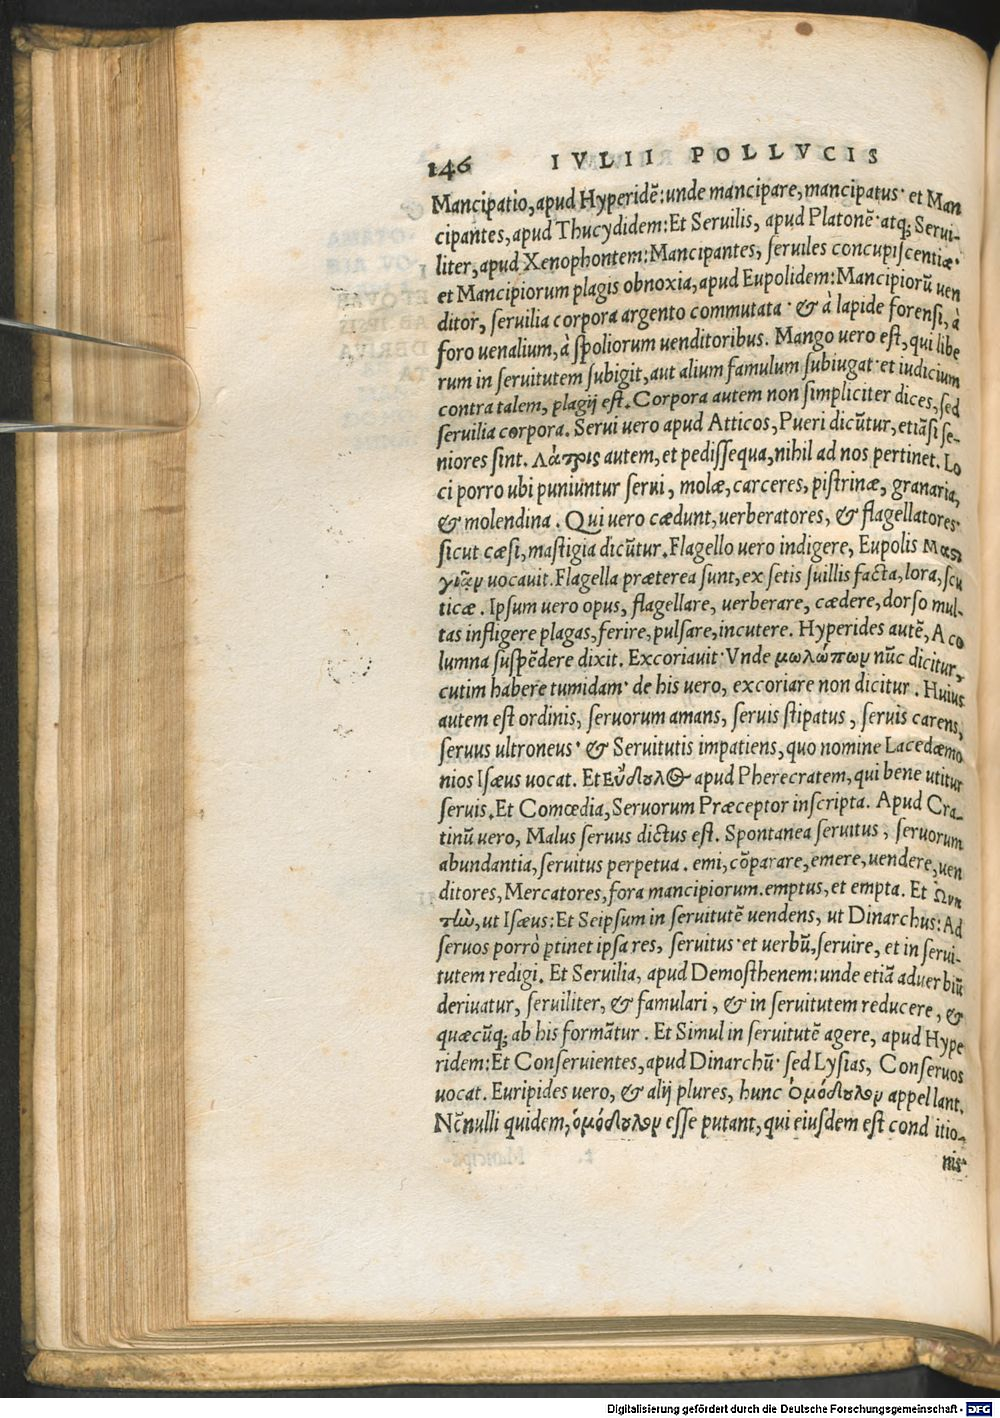 146 IVLII POLLVCIS
Mancipatio, apud Hyperidẽ: unde mancipare, mancipatus· et Man
cipantes, apud Thucydidem: Et Seruilis, apud Platonẽ· atq; Serui-
liter, apud Xenophontem: Mancipantes, seruiles concupiscentiæ·
et Mancipiorum plagis obnoxia, apud Eupolidem: Mancipiorũ uen
ditor, seruilia corpora argento commutata· & à lapide forensi, à
foro uenalium, à spoliorum uenditoribus. Mango uero est, qui libe
rum in seruitutem subigit, aut alium famulum subiugat· et iudicium
contra talem, plagij est. Corpora autem non simpliciter dices, sed
seruilia corpora. Serui uero apud Atticos, Pueri dicũtur, etiãsi se-
niores sint. Λάτρις autem, et pedissequa, nihil ad nos pertinet. Lo
ci porro ubi puniuntur serui, molæ, carceres, pistrinæ, granaria,
& molendina. Qui uero cædunt, uerberatores, & flagellatores·
sicut cæsi, mastigia dicũtur. Flagello uero indigere, Eupolis Μαστι
γιᾶν uocauit. Flagella præterea sunt, ex setis suillis facta, lora, scu
ticæ. Ipsum uero opus, flagellare, uerberare, cædere, dorso mul-
tas infligere plagas, ferire, pulsare, incutere. Hyperides autẽ, A co
lumna suspẽdere dixit. Excoriauit· Vnde μωλώπων nũc dicitur,
cutim habere tumidam· de his uero, excoriare non dicitur. Huius
autem est ordinis, seruorum amans, seruis stipatus, seruis carens,
seruus ultroneus· & Seruitutis impatiens, quo nomine Lacedæmo
nios Isæus uocat. Et Εὔδουλος apud Pherecratem, qui bene utitur
seruis. Et Comœdia, Seruorum Præceptor inscripta. Apud Cra-
tinũ uero, Malus seruus dictus est. Spontanea seruitus, seruorum
abundantia, seruitus perpetua. emi, cõparare, emere, uendere, uen
ditores, Mercatores, fora mancipiorum. emptus, et empta. Et Ὠνη
τὼ, ut Isæus: Et Seipsum in seruitutẽ uendens, ut Dinarchus: Ad
seruos porrò ptinet ipsa res, seruitus· et uerbũ, seruire, et in serui-
tutem redigi. Et Seruilia, apud Demosthenem: unde etiã aduerbiũ
deriuatur, seruiliter, & famulari, & in seruitutem reducere, &
quæcũq; ab his formãtur. Et Simul in seruitutẽ agere, apud Hype
ridem: Et Conseruientes, apud Dinarchũ· sed Lysias, Conseruos
uocat. Euripides uero, & alij plures, hunc Ὁμόδουλον appellant.
Nõnulli quidem, ὁμόδουλον esse putant, qui eiusdem est conditio-
nis·
Digitalisierung gefördert durch die Deutsche Forschungsgemeinschaft - DFG